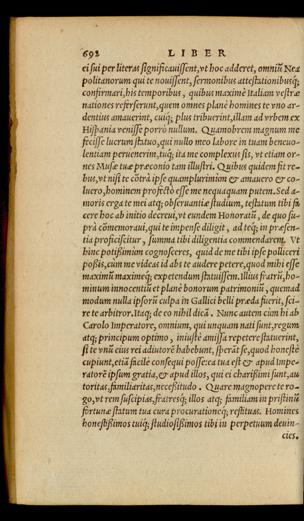 692 LIBER
ei sui per literas significauissent, vt hoc adderet, omniũ Nea
politanorum qui te nouissent, sermonibus attestationibusq́;
confirmari, his temporibus, quibus maximè Italiam vestræ
nationes referserunt, quem omnes planè homines te vno ar-
dentius amauerint, cuiq́; plus tribuerint, illam ad vrbem ex
Hispania venisse porrò nullum. Quamobrem magnum me
fecisse lucrum statuo, qui nullo meo labore in tuam beneuo-
lentiam peruenerim, tuq́; ita me complexus sis, vt etiam or-
nes Musæ tuæ præconio tam illustri. Quibus quidem fit re-
bus, vt nisi te cõtrà ipse quamplurimùm & amauero & co-
luero, hominem profectò esse me nequaquam putem. Sed a-
moris erga te mei atq; obseruantiæ studium, testatum tibi fa
cere hoc ab initio decreui, vt eundem Honoratũ, de quo su-
prà cõmemoraui, qui te impense diligit, ad teq; in præsen-
tia proficiscitur, summa tibi diligentia commendarem. Vt
hinc potißimùm cognosceres, quid de me tibi ipse polliceri
poßis, cùm me videas id abs te audere petere, quod mihi esse
maximũ maximeq́; expetendum statuissem. Illius fratrũ, ho-
minum innocentiũ et planè bonorum patrimoniũ, quemad
modum nulla ipsorũ culpa in Gallici belli præda fuerit, sci-
re te arbitror. Itaq; de eo nihil dicã. Nunc autem cùm hi ab
Carolo Imperatore, omnium, qui unquam nati sunt, regum
atq; principum optimo, iniustè amissa repetere statuerint,
si te vnũ eius rei adiutorẽ habebunt, sperãt se, quod honestè
cupiunt, etiã facilè consequi posse: ea tua est & apud Impe-
ratorẽ ipsum gratia, & apud illos, qui ei charißimi sunt, au
toritas, familiaritas, neceßitudo. Quare magnopere te ro-
go, vt rem suscipias, fratresq́; illos atq; familiam in pristinũ
fortunæ statum tua cura procurationeq́; restituas. Homines
honestißimos tuiq́; studiosißimos tibi in perpetuum deuin-
cies.